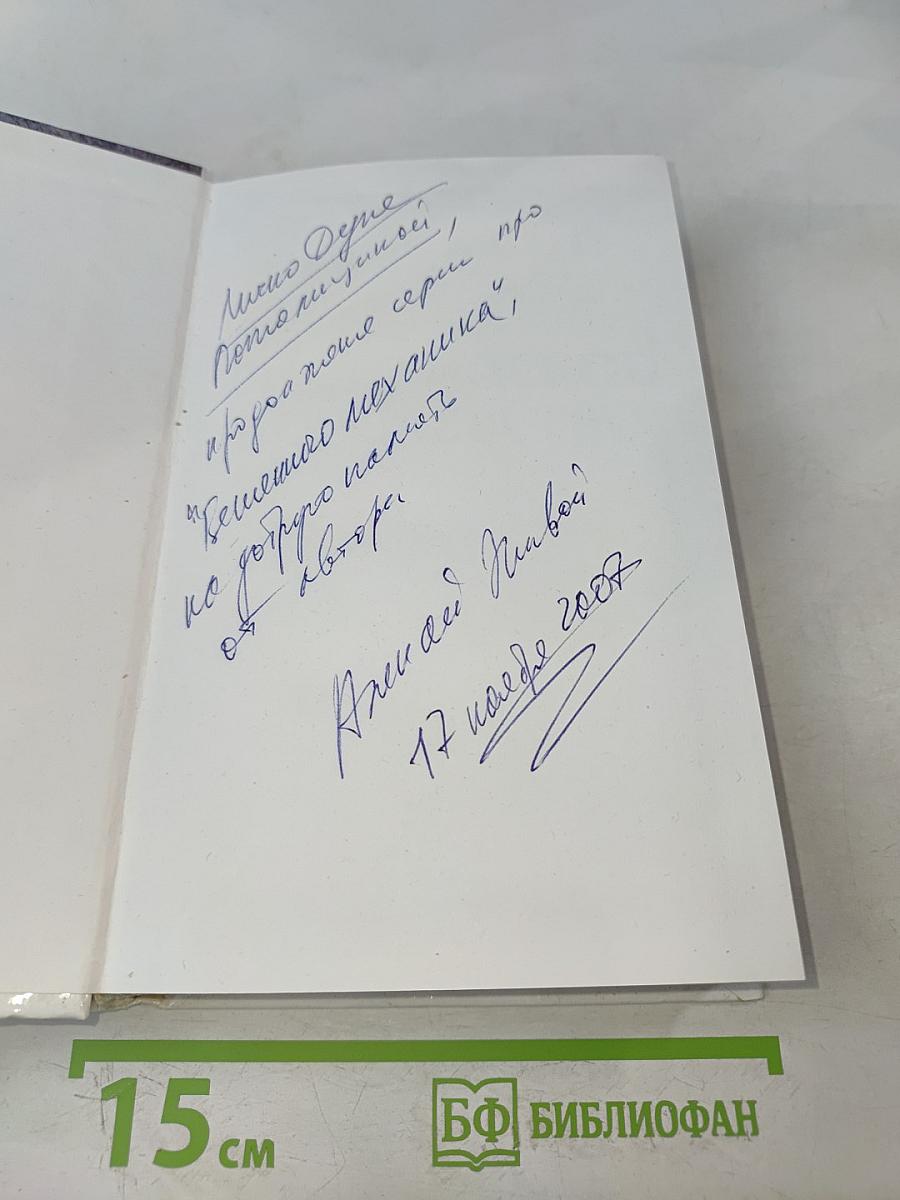 Лично Дуне
Потапициной,
продолжение серии про
"Бешенного механика",
на добрую память
от автора
Алексей Живой
17 ноября 2007
15 см
БФ БИБЛИОФАН